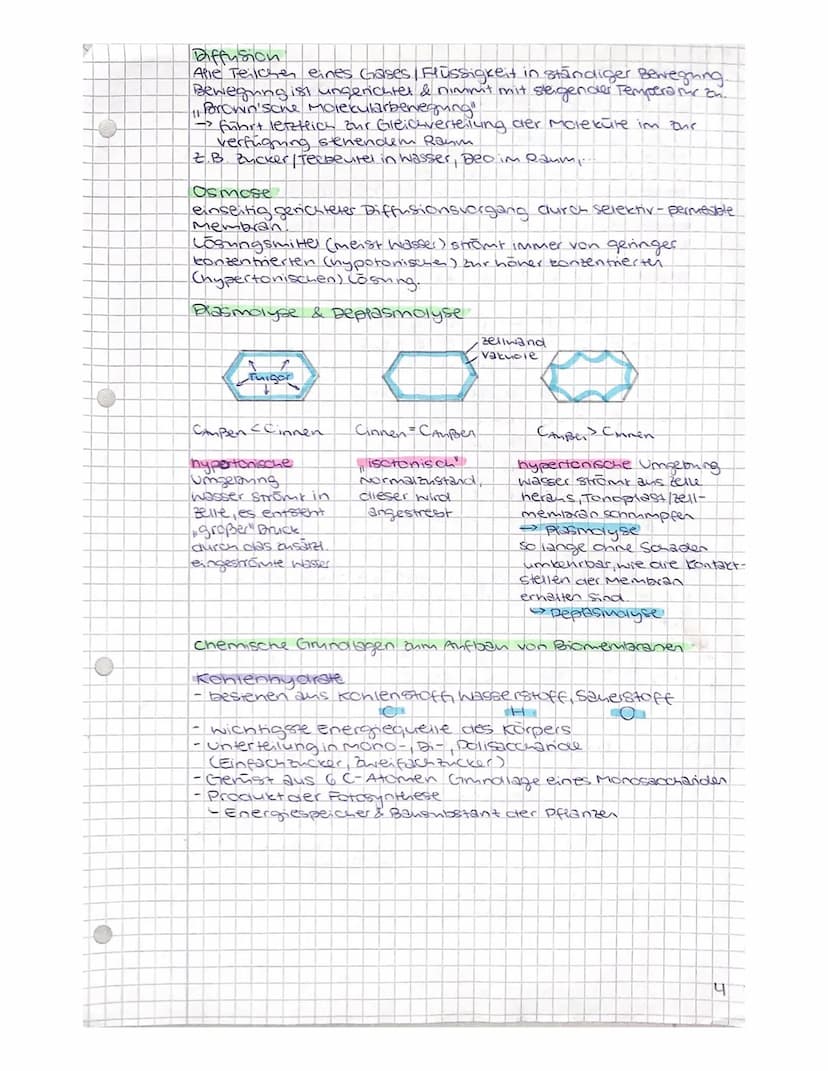 Diffusion
Alle Teilchen eines Gases/Flüssigkeit in ständiger Bewegung.
Bewegung ist ungerichtet & nimmt mit steigender Temperatur zu.
„Brown'sche Molekularbewegung"
→ führt letztlich zur Gleichverteilung der Moleküle im zur
verfügung stehendem Raum
z.B. Zucker/Teebeutel in Wasser, Deo im Raum,...
Osmose
einseitig gerichteter Diffusionsvorgang durch selektiv-permeable
Membran.
Lösungsmittel (meist Wasser) strömt immer von geringer
konzentrierten (hypotonischen) zur höher konzentrierten
(hypertonischen) Lösung.
Plasmolyse & Deplasmolyse
Zellwand
Vakuole
Turgor
CAußen < Cinnen
Cinnen = CAußen
CAußen > Cinnen
hypotonische
Umgebung
Wasser strömt in
Zelle, es entsteht
„großer" Druck
durch das zusätzl.
eingeströmte Wasser
„isotonisch"
Normalzustand,
dieser wird
angestrebt
hypertonische Umgebung
Wasser strömt aus Zelle
heraus, Tonoplast/Zell-
membran schrumpfen
→ Plasmolyse
so lange ohne Schaden
umkehrbar, wie die Kontakt-
stellen der Membran
erhalten sind
↪ Deplasmolyse
Chemische Grundlagen zum Aufbau von Biomembranen
Kohlenhydrate
- bestehen aus Kohlenstoff, Wasserstoff, Sauerstoff
C H O
- wichtigste Energiequelle des Körpers
- Unterteilung in Mono-, Bi-, Polisaccharide
(Einfachzucker, Zweifachzucker)
- Gerüst aus 6 C-Atomen Grundlage eines Monosacchariden
- Produkt der Fotosynthese
↪ Energiespeicher & Bausubstant der Pflanzen
4